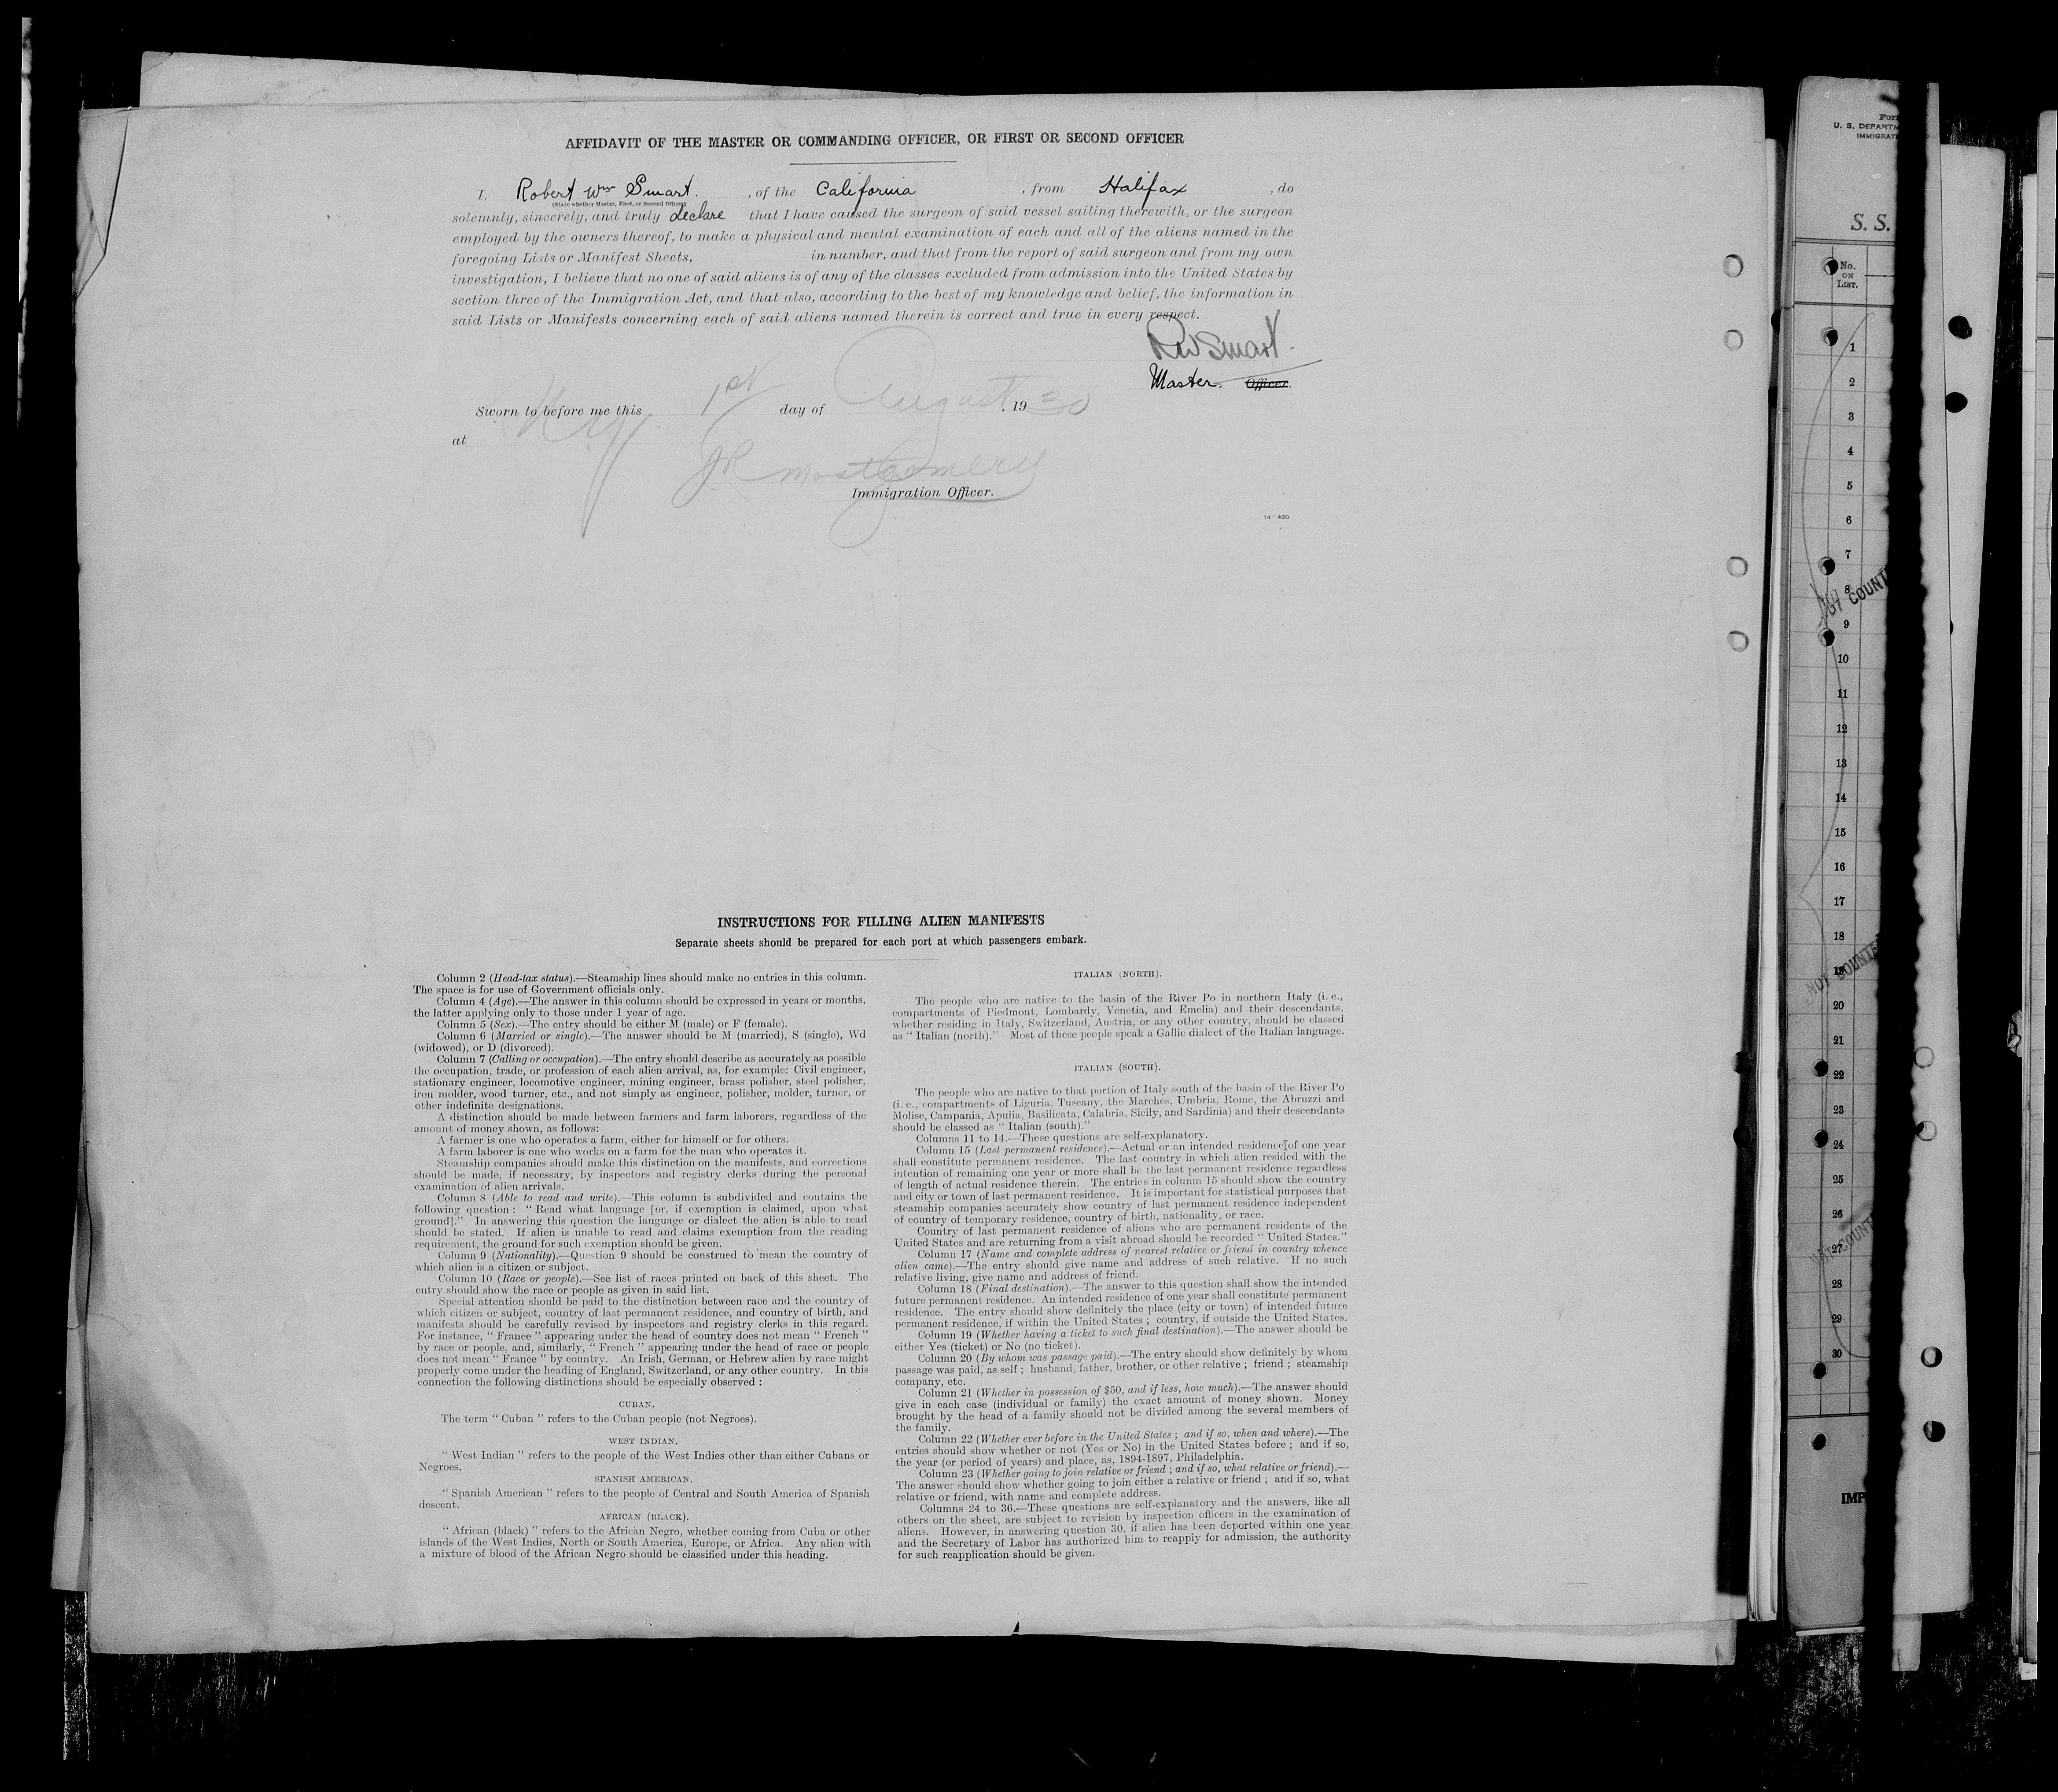 AFFIDAVIT OF THE MASTER OR COMMANDING OFFICER, OR FIRST OR SECOND OFFICER
I, Robert Wm Smart. , of the California , from Halifax , do
(State whether Master, First, or Second Officer)
solemnly, sincerely, and truly declare that I have caused the surgeon of said vessel sailing therewith, or the surgeon
employed by the owners thereof, to make a physical and mental examination of each and all of the aliens named in the
foregoing Lists or Manifest Sheets, in number, and that from the report of said surgeon and from my own
investigation, I believe that no one of said aliens is of any of the classes excluded from admission into the United States by
section three of the Immigration Act, and that also, according to the best of my knowledge and belief, the information in
said Lists or Manifests concerning each of said aliens named therein is correct and true in every respect.
RW Smart.
Master. Officer.
Sworn to before me this 1st day of August , 1930
at NY
JR Montgomery
Immigration Officer.
14—430
INSTRUCTIONS FOR FILLING ALIEN MANIFESTS
Separate sheets should be prepared for each port at which passengers embark.
Column 2 (Head-tax status).—Steamship lines should make no entries in this column.
The space is for use of Government officials only.
Column 4 (Age).—The answer in this column should be expressed in years or months,
the latter applying only to those under 1 year of age.
Column 5 (Sex).—The entry should be either M (male) or F (female).
Column 6 (Married or single).—The answer should be M (married), S (single), Wd
(widowed), or D (divorced).
Column 7 (Calling or occupation).—The entry should describe as accurately as possible
the occupation, trade, or profession of each alien arrival, as, for example: Civil engineer,
stationary engineer, locomotive engineer, mining engineer, brass polisher, steel polisher,
iron molder, wood turner, etc., and not simply as engineer, polisher, molder, turner, or
other indefinite designations.
A distinction should be made between farmers and farm laborers, regardless of the
amount of money shown, as follows:
A farmer is one who operates a farm, either for himself or for others.
A farm laborer is one who works on a farm for the man who operates it.
Steamship companies should make this distinction on the manifests, and corrections
should be made, if necessary, by inspectors and registry clerks during the personal
examination of alien arrivals.
Column 8 (Able to read and write).—This column is subdivided and contains the
following question: "Read what language [or, if exemption is claimed, upon what
ground]." In answering this question the language or dialect the alien is able to read
should be stated. If alien is unable to read and claims exemption from the reading
requirement, the ground for such exemption should be given.
Column 9 (Nationality).—Question 9 should be construed to mean the country of
which alien is a citizen or subject.
Column 10 (Race or people).—See list of races printed on back of this sheet. The
entry should show the race or people as given in said list.
Special attention should be paid to the distinction between race and the country of
which citizen or subject, country of last permanent residence, and country of birth, and
manifests should be carefully revised by inspectors and registry clerks in this regard.
For instance, "France" appearing under the head of country does not mean "French"
by race or people, and, similarly, "French" appearing under the head of race or people
does not mean "France" by country. An Irish, German, or Hebrew alien by race might
properly come under the heading of England, Switzerland, or any other country. In this
connection the following distinctions should be especially observed:
CUBAN.
The term "Cuban" refers to the Cuban people (not Negroes).
WEST INDIAN.
"West Indian" refers to the people of the West Indies other than either Cubans or
Negroes.
SPANISH AMERICAN.
"Spanish American" refers to the people of Central and South America of Spanish
descent.
AFRICAN (BLACK).
"African (black)" refers to the African Negro, whether coming from Cuba or other
islands of the West Indies, North or South America, Europe, or Africa. Any alien with
a mixture of blood of the African Negro should be classified under this heading.
ITALIAN (NORTH).
The people who are native to the basin of the River Po in northern Italy (i. e.,
compartments of Piedmont, Lombardy, Venetia, and Emelia) and their descendants,
whether residing in Italy, Switzerland, Austria, or any other country, should be classed
as "Italian (north)." Most of these people speak a Gallic dialect of the Italian language.
ITALIAN (SOUTH).
The people who are native to that portion of Italy south of the basin of the River Po
(i. e., compartments of Liguria, Tuscany, the Marches, Umbria, Rome, the Abruzzi and
Molise, Campania, Apulia, Basilicata, Calabria, Sicily, and Sardinia) and their descendants
should be classed as "Italian (south)."
Columns 11 to 14.—These questions are self-explanatory.
Column 15 (Last permanent residence).—Actual or an intended residence of one year
shall constitute permanent residence. The last country in which alien resided with the
intention of remaining one year or more shall be the last permanent residence regardless
of length of actual residence therein. The entries in column 15 should show the country
and city or town of last permanent residence. It is important for statistical purposes that
steamship companies accurately show country of last permanent residence independent
of country of temporary residence, country of birth, nationality, or race.
Country of last permanent residence of aliens who are permanent residents of the
United States and are returning from a visit abroad should be recorded "United States."
Column 17 (Name and complete address of nearest relative or friend in country whence
alien came).—The entry should give name and address of such relative. If no such
relative living, give name and address of friend.
Column 18 (Final destination).—The answer to this question shall show the intended
future permanent residence. An intended residence of one year shall constitute permanent
residence. The entry should show definitely the place (city or town) of intended future
permanent residence, if within the United States; country, if outside the United States.
Column 19 (Whether having a ticket to such final destination).—The answer should be
either Yes (ticket) or No (no ticket).
Column 20 (By whom was passage paid).—The entry should show definitely by whom
passage was paid, as self; husband, father, brother, or other relative; friend; steamship
company, etc.
Column 21 (Whether in possession of $50, and if less, how much).—The answer should
give in each case (individual or family) the exact amount of money shown. Money
brought by the head of a family should not be divided among the several members of
the family.
Column 22 (Whether ever before in the United States; and if so, when and where).—The
entries should show whether or not (Yes or No) in the United States before; and if so,
the year (or period of years) and place, as, 1894-1897, Philadelphia.
Column 23 (Whether going to join relative or friend; and if so, what relative or friend).—
The answer should show whether going to join either a relative or friend; and if so, what
relative or friend, with name and complete address.
Columns 24 to 36.—These questions are self-explanatory and the answers, like all
others on the sheet, are subject to revision by inspection officers in the examination of
aliens. However, in answering question 30, if alien has been deported within one year
and the Secretary of Labor has authorized him to reapply for admission, the authority
for such reapplication should be given.
U. S. DEPARTM
IMMIGRAT
S. S.
No.
ON
LIST.
1
2
3
4
5
6
7
8
9
10
11
12
13
14
15
16
17
18
19
20
21
22
23
24
25
26
27
28
29
30
NOT COUNT
NOT COUNTE
NOT COUNT
IMP